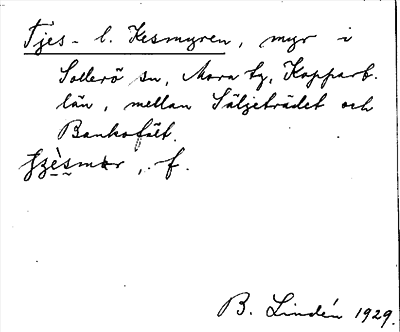 Tjes- l. Kesmyren, myr i
Sollerö sn, Mora tg, Kopparb.
län, mellan Säljeträdet och
Bankofält.
, f.
B. Lindén 1929.